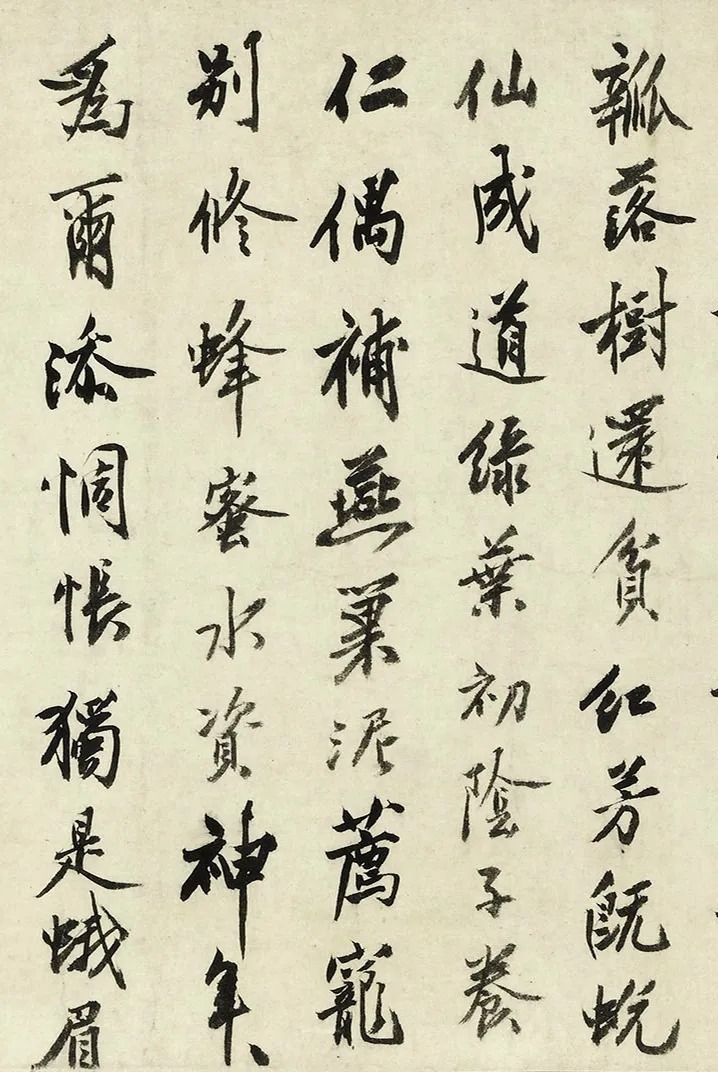 瓣落樹還貧紅芳既蛻
仙成道綠葉初陰子養
仁偶補燕巢泥薦寵
別修蜂蜜水資神年々
爲爾添惆悵獨是蛾眉